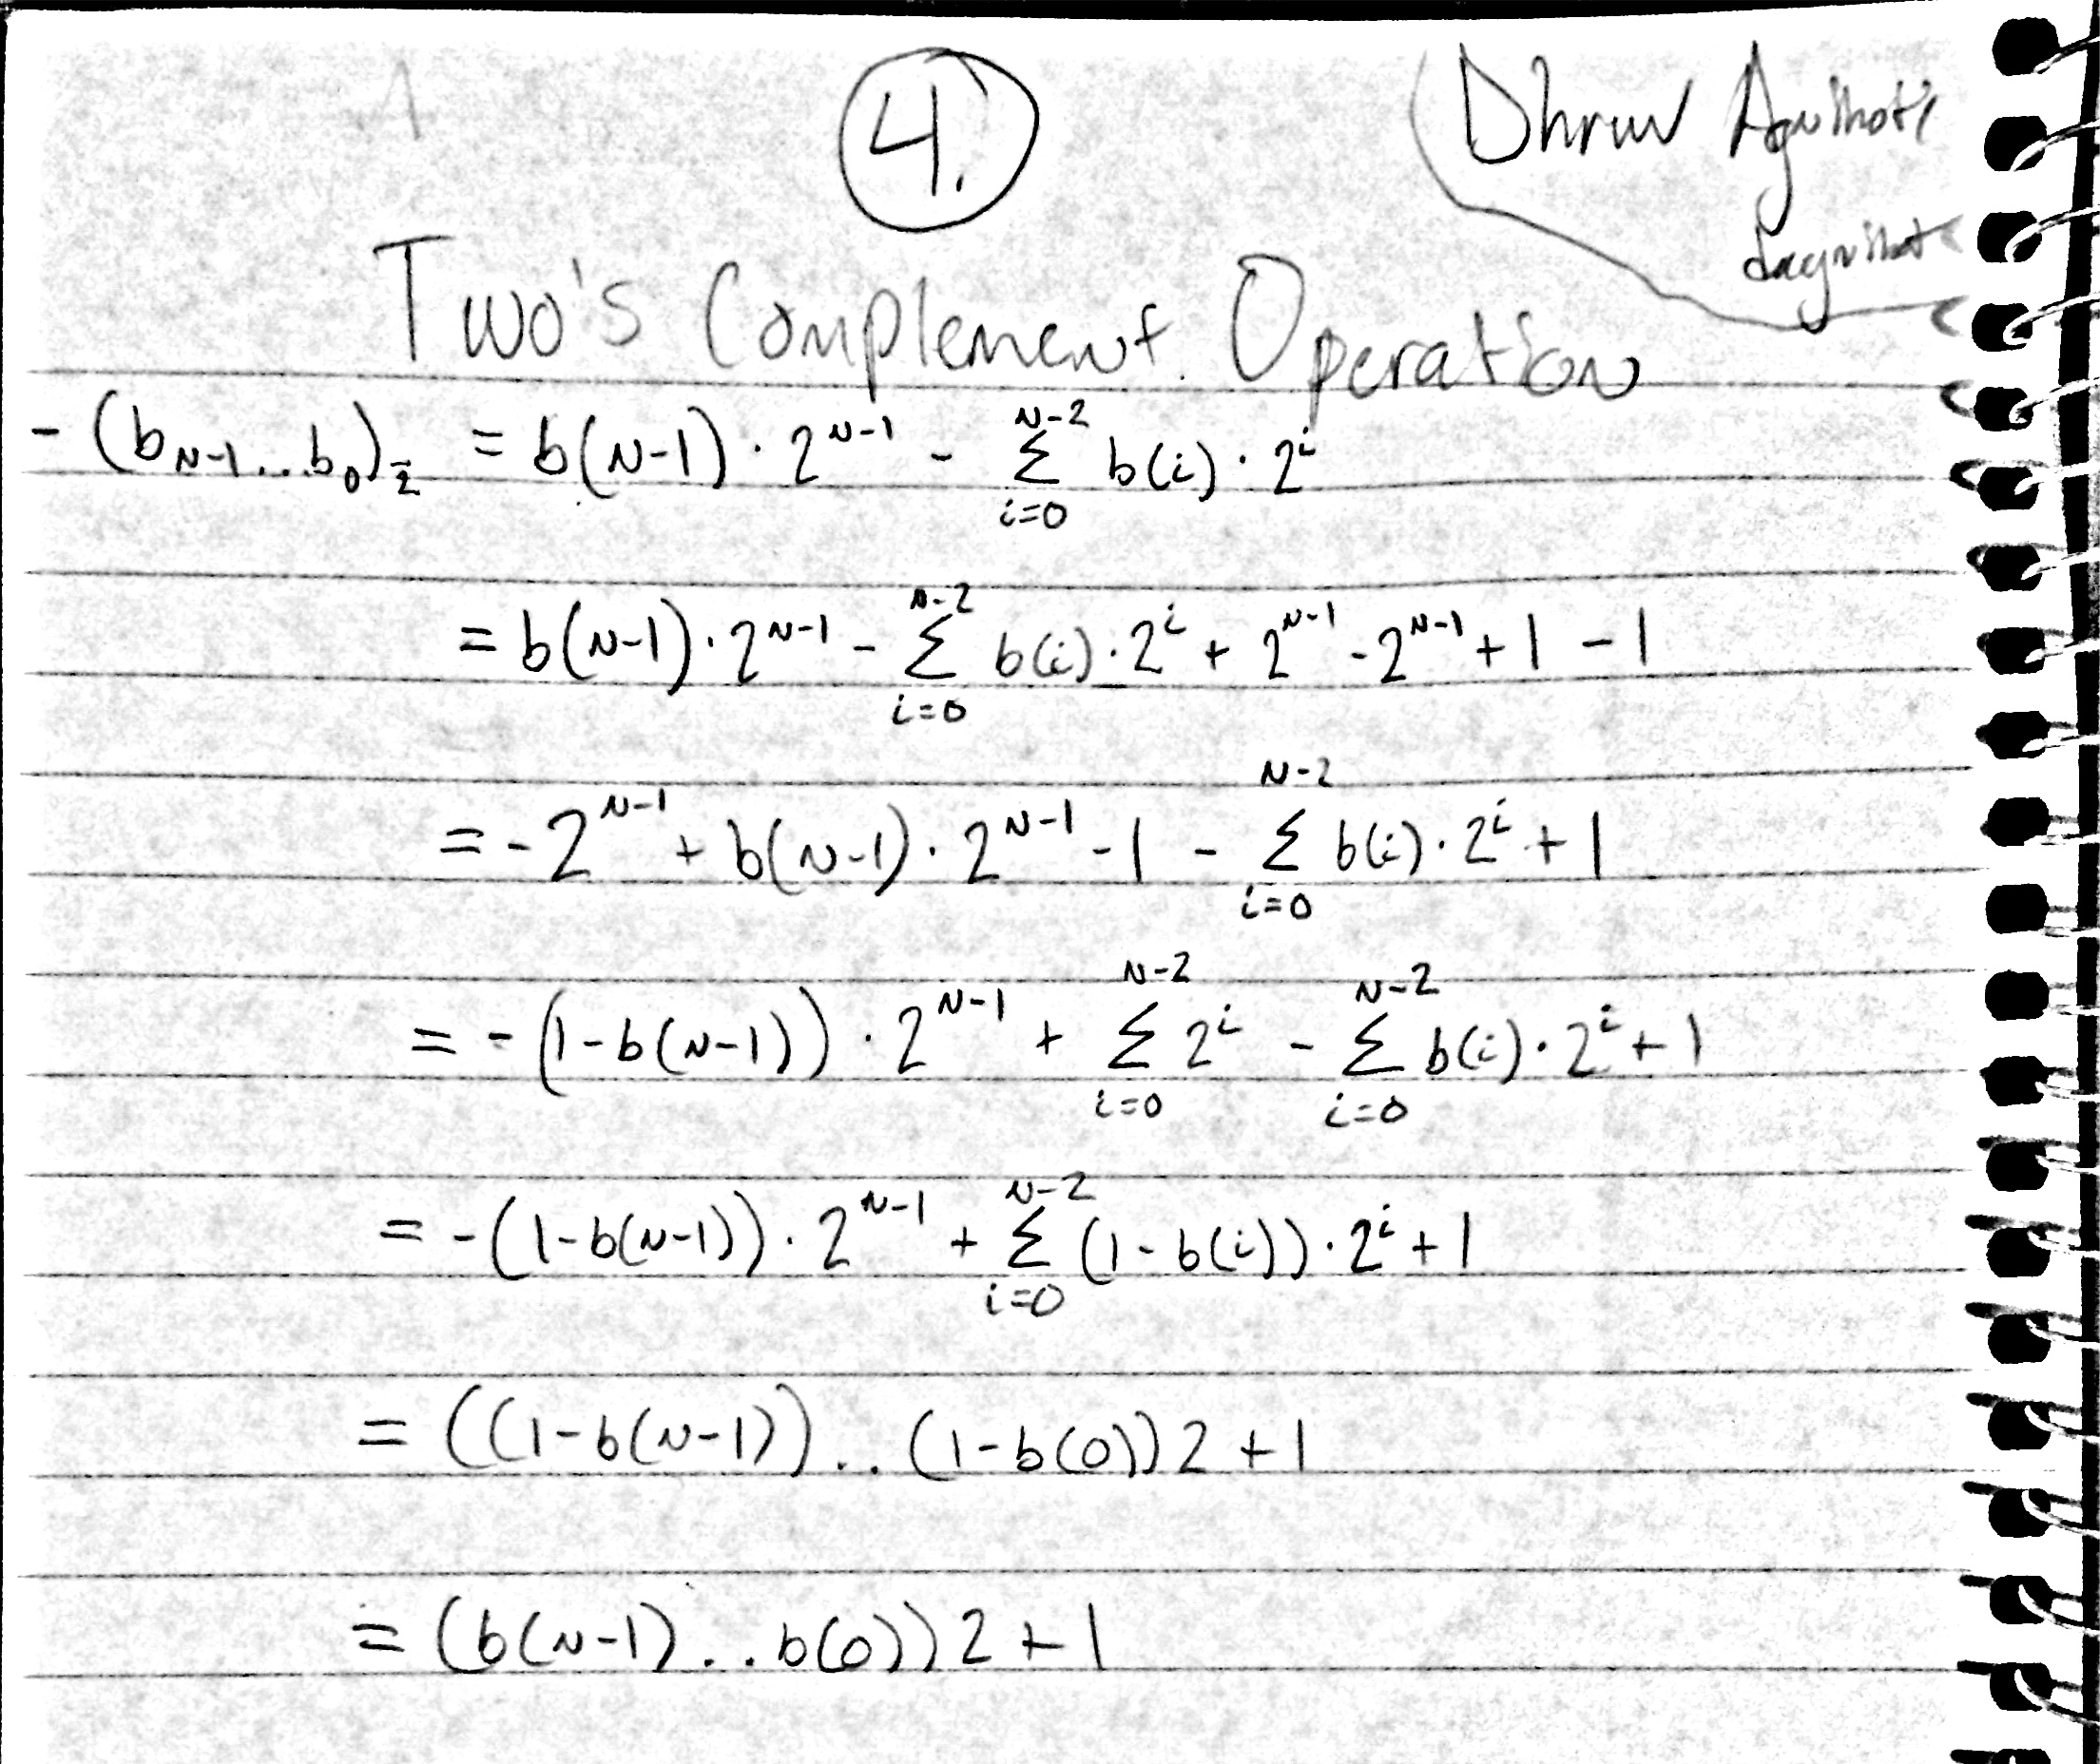 4.
Dhruv Agnihotri
dagnihot
Two's Complement Operation
- (b_{N-1}...b_0)_{\bar{2}} = b(N-1) · 2^{N-1} - Σ_{i=0}^{N-2} b(i) · 2^i
= b(N-1) · 2^{N-1} - Σ_{i=0}^{N-2} b(i) · 2^i + 2^{N-1} - 2^{N-1} + 1 - 1
= -2^{N-1} + b(N-1) · 2^{N-1} - 1 - Σ_{i=0}^{N-2} b(i) · 2^i + 1
= - (1-b(N-1)) · 2^{N-1} + Σ_{i=0}^{N-2} 2^i - Σ_{i=0}^{N-2} b(i) · 2^i + 1
= - (1-b(N-1)) · 2^{N-1} + Σ_{i=0}^{N-2} (1-b(i)) · 2^i + 1
= ((1-b(N-1)) .. (1-b(0)) 2 + 1
= (b(N-1) .. b(0)) 2 + 1